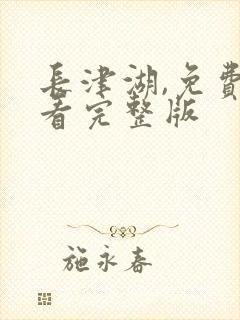 長津湖,免費
看完整版
施永春